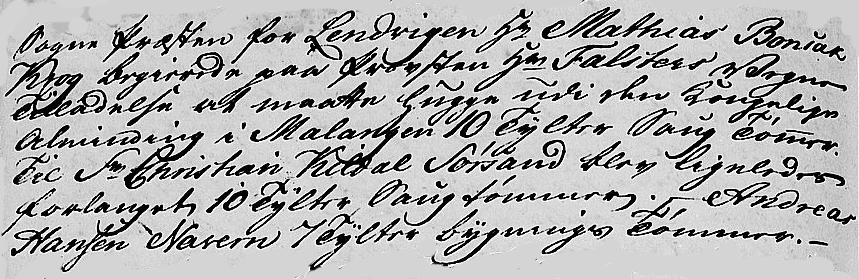 Sogne Præsten for Lendvigen Hr Mathias Bonsak
Krog begierede paa Provsten Hrr Falsters Vegne
Tilladelse at maatte hugge udi den Kongelige
Alminding i Malangen 10 Tylter Saug Tømmer.
Til Sr Christian Kildal Sørsand blev ligeledes
forlanget 10 Tylter Saugtømmer. – Andreas
Hansen Navern 7 Tylter bygnings Tømmer. –